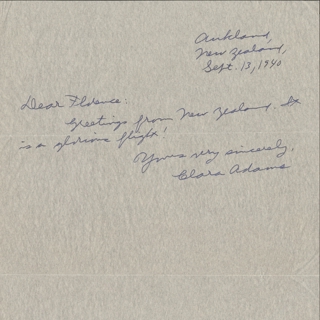 Auckland,
New Zealand,
Sept. 13, 1940
Dear Florence:
Greetings from New Zealand. It
is a glorious flight!
Yours very sincerely,
Clara Adams